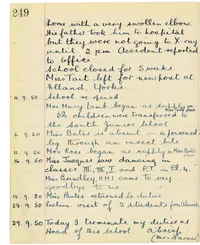 249
home with a very swollen elbow.
His father took him to hospital
but they were not going to X-ray
until 2 pm Accident reported
to Office
School closed for 5 wks
Miss Tait left for new post at
Elland, Yorks.
School re-opened
Mrs Mary Lamb began as supply
52 children were transferred to
the South Junior School
Miss Bates is absent - a poisoned
leg through an insect bite
Mrs Rose began as supply
Miss Jacques saw dancing in
classes III, IV, V and P.T. in Cl. 4.
Miss Brindley, HMI came to say
goodbye to me
Miss Bates returned to duties
visit of 2 students for
29.9.50 Today I terminate my duties as
Head of this school